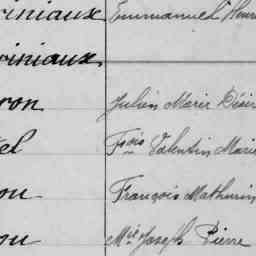 riniaux Emmanuel Henri
viniaux
ron Julien Marie Désir
el Fçois Valentin Marie
ou François Mathurin
ou Mie Joseph Pierre